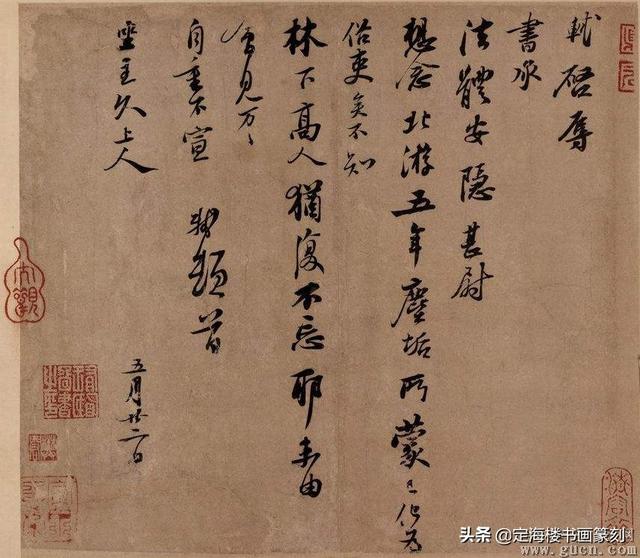 軾啓辱
書承
法體安隱甚尉
想念北游五年塵垢所蒙已化為
俗吏矣不知
林下高人猶復不忘耶未由
會見万〻
自重不宣 軾頓首
坐主久上人
五月廿二日
头条 @定海楼书画篆刻
www.gucn.com